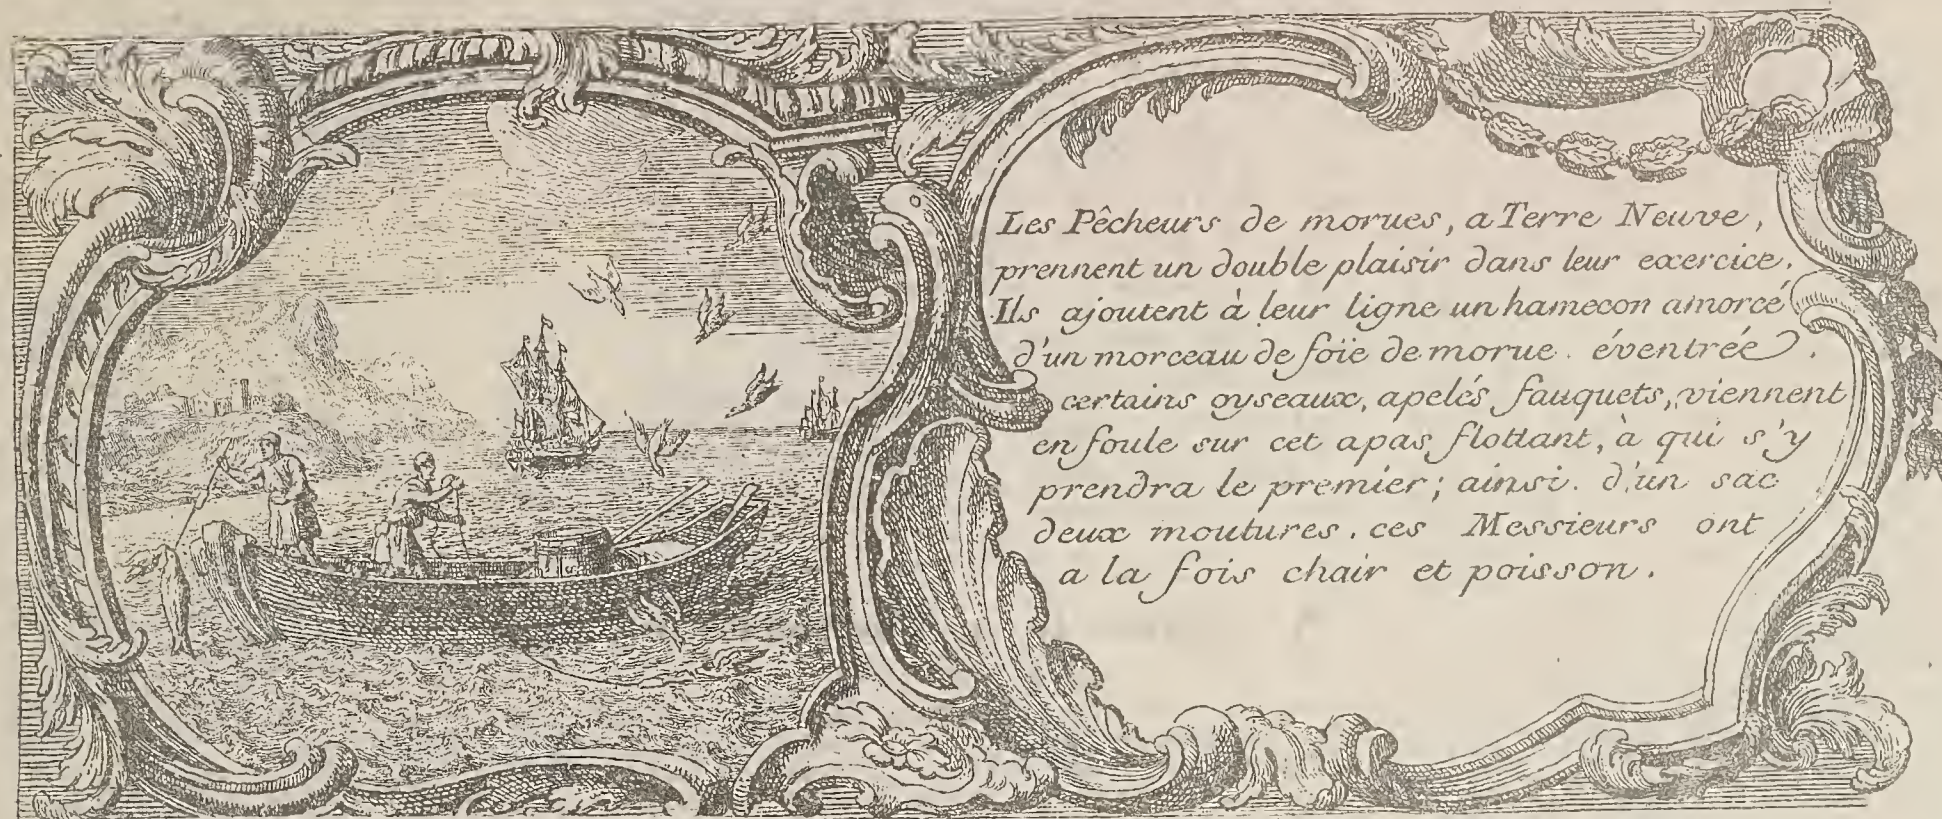 Les Pêcheurs de morues, a Terre Neuve,
prennent un double plaisir dans leur exercice.
Ils ajoutent à leur ligne un hamecon amorcé
d'un morceau de foïe de morue. éventrée.
certains oyseaux, apelés fauquets, viennent
en foule sur cet apas flottant, à qui s'y
prendra le premier; ainsi. d'un sac
deux moutures. ces Messieurs ont
a la fois chair et poisson.